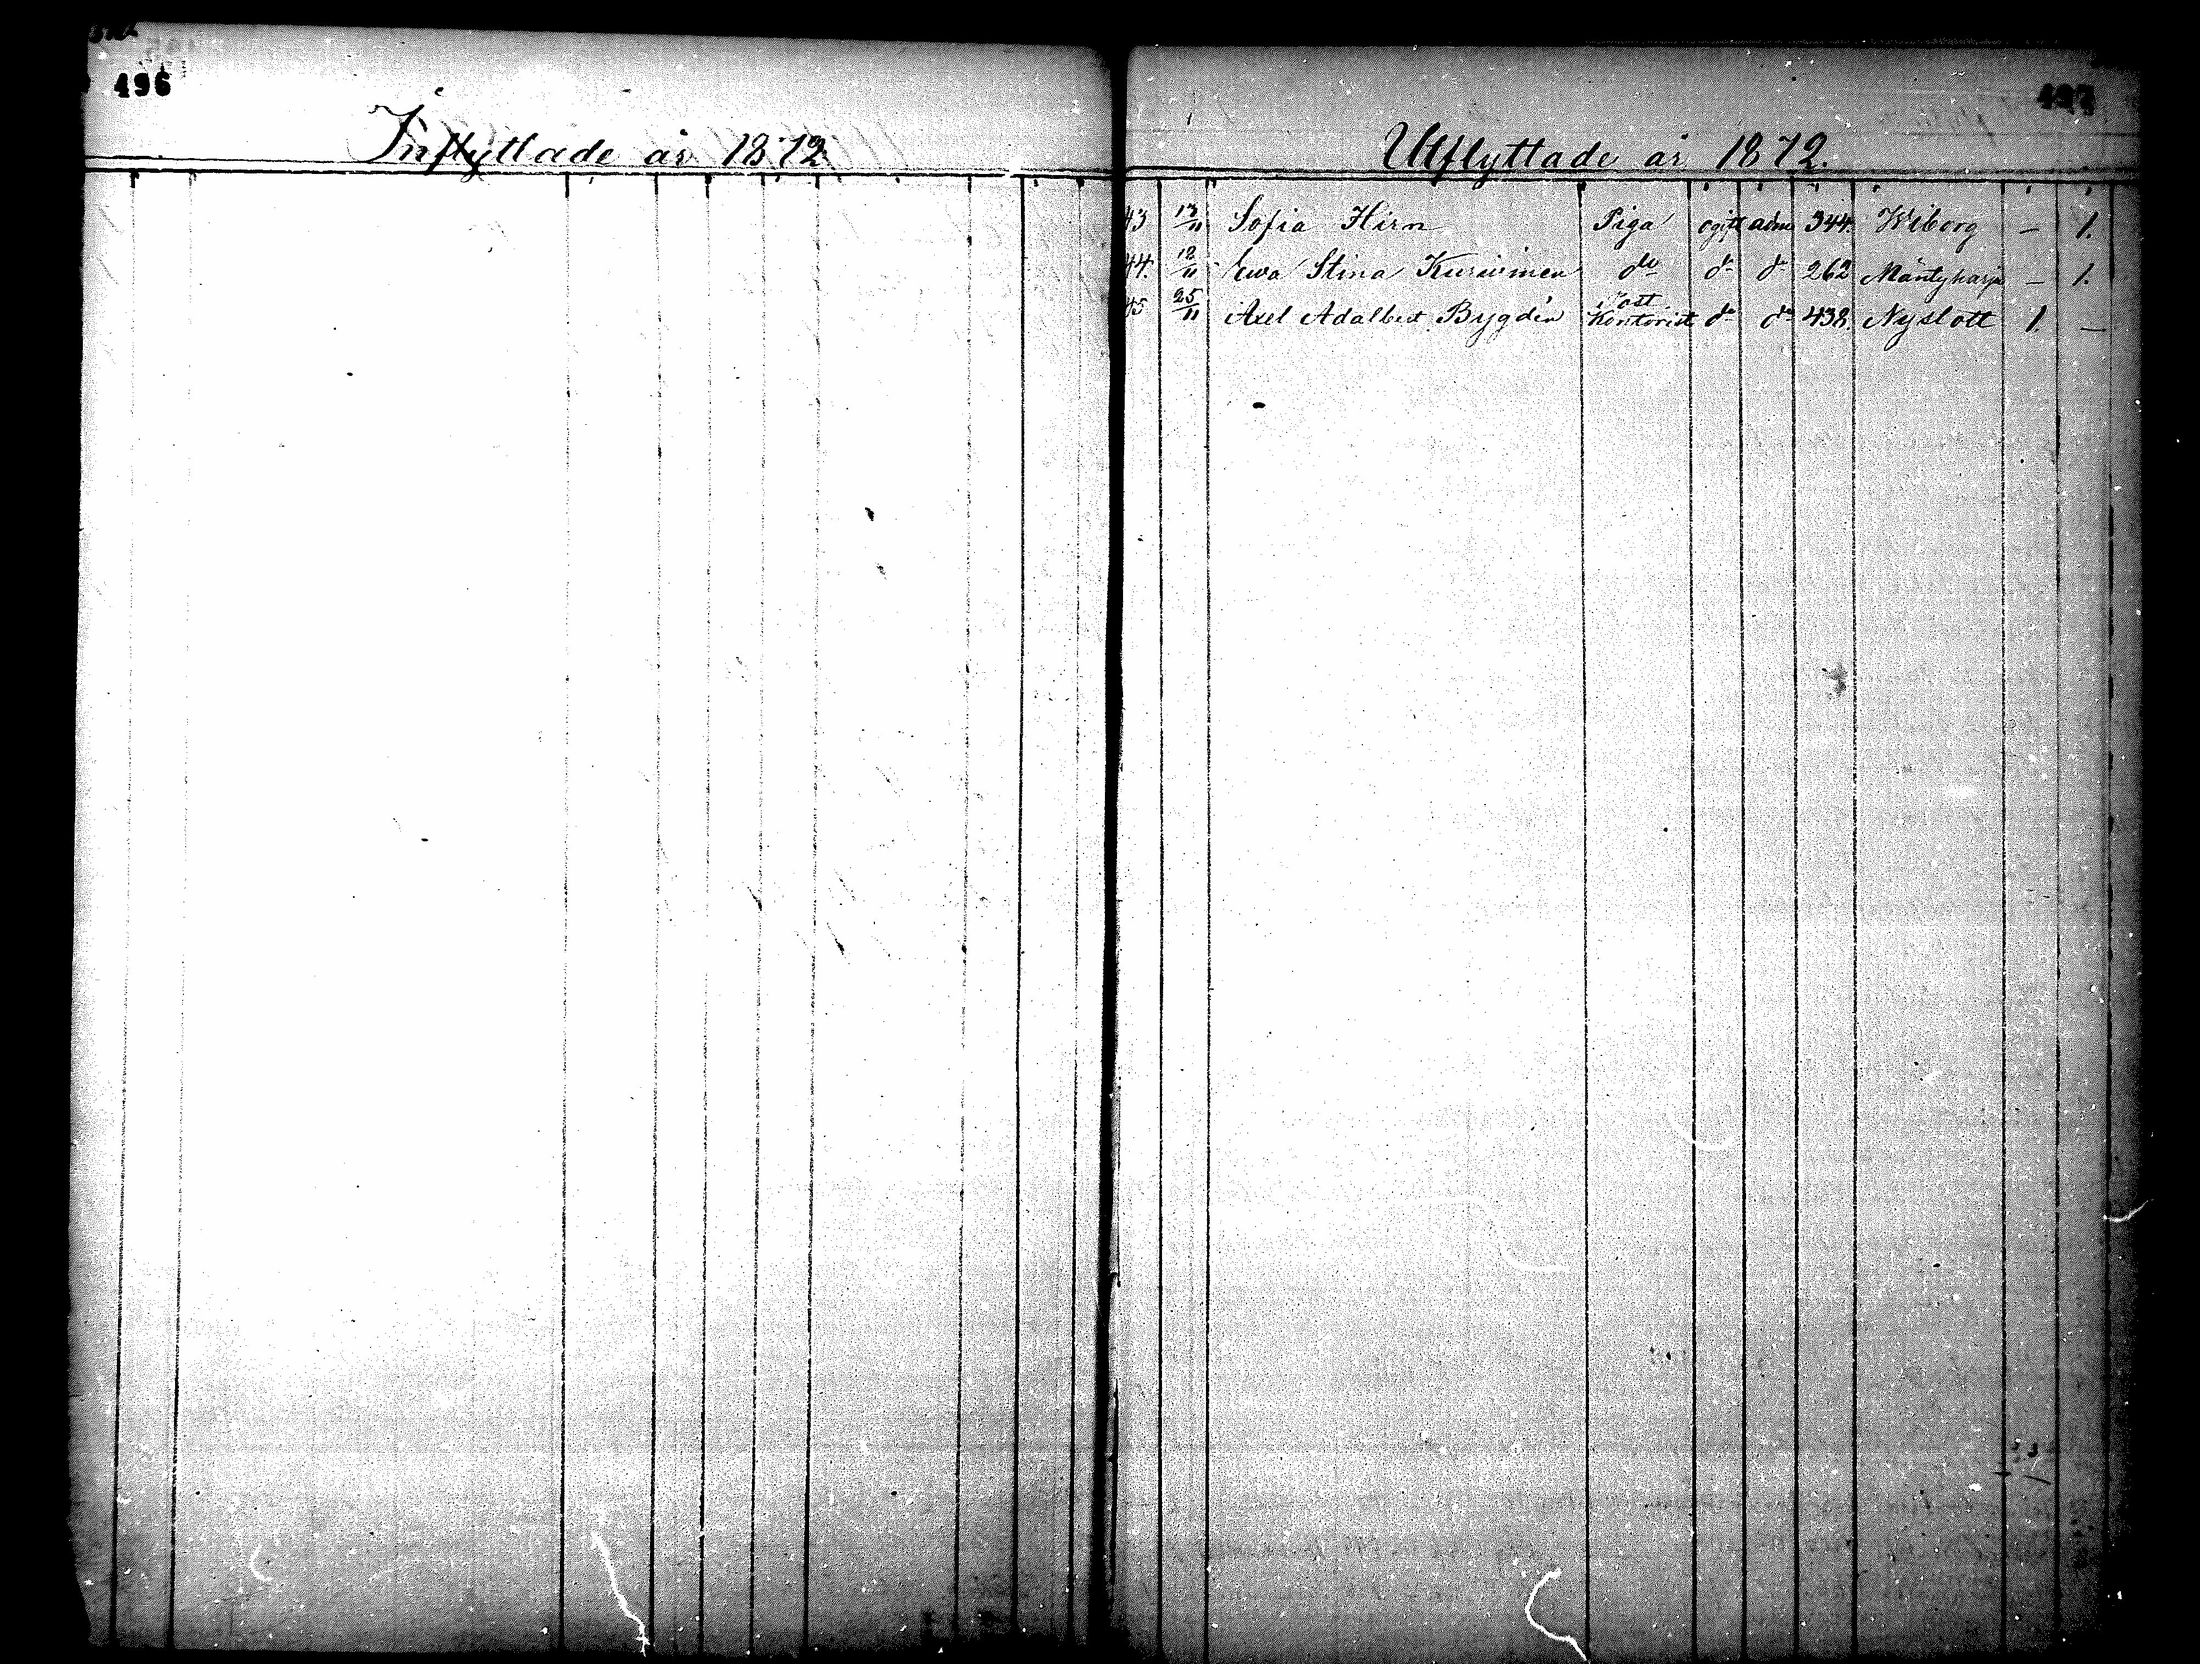 496
Inflyttade år 1872
497
Utflyttade år 1872.
43 13/11 Sofia Hirn Piga ogift adm 344. Wiborg — 1.
44. 18/11 Ewa Stina do d:o d:o 262 Mäntyharju — 1.
45 25/11 Axel Adalbert Bygdén Post Kontorist d:o d:o 438. Nyslott 1. —